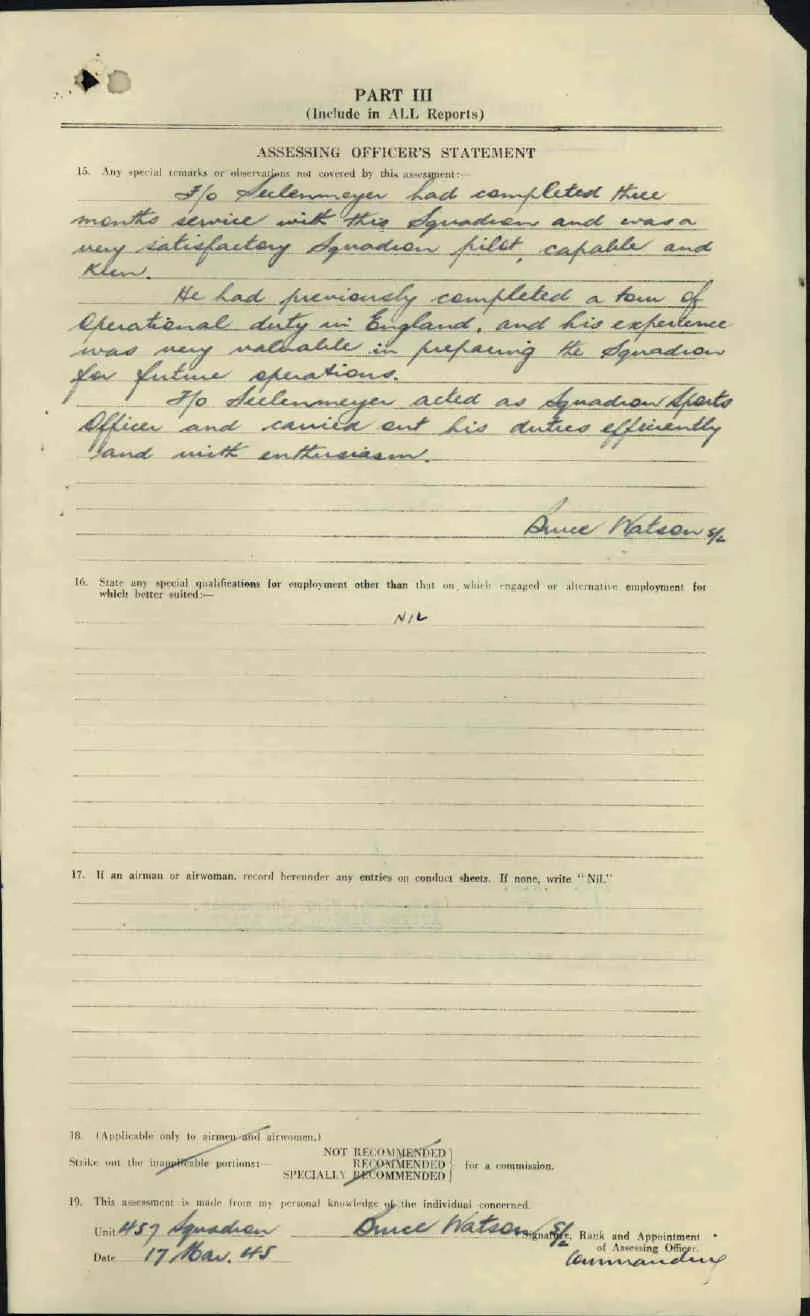 PART III
(Include in ALL Reports)
ASSESSING OFFICER'S STATEMENT
15. Any special remarks or observations not covered by this assesment:—
F/o Seelenmeyer had completed three
months service with this Squadron and was a
very satisfactory Squadron pilot, capable and
keen.
He had previously completed a tour of
Operational duty in England, and his experience
was very valuable in preparing the Squadron
for future operations.
F/o Seelenmeyer acted as Squadron Sports
Officer and carried out his duties efficiently
and with enthusiasm.
Bruce Watson S/L
16. State any special qualifications for employment other than that on which engaged or alternative employment for
which better suited:—
NIL
17. If an airman or airwoman, record hereunder any entries on conduct sheets. If none, write "Nil."
18. (Applicable only to airmen and airwomen.)
NOT RECOMMENDED
Strike out the inapplicable portions:— RECOMMENDED for a commission.
SPECIALLY RECOMMENDED
19. This assessment is made from my personal knowledge of the individual concerned.
Unit 457 Squadron Bruce Watson S/L Signature, Rank and Appointment
of Assessing Officer.
Date 17 Mar. 45 Commanding